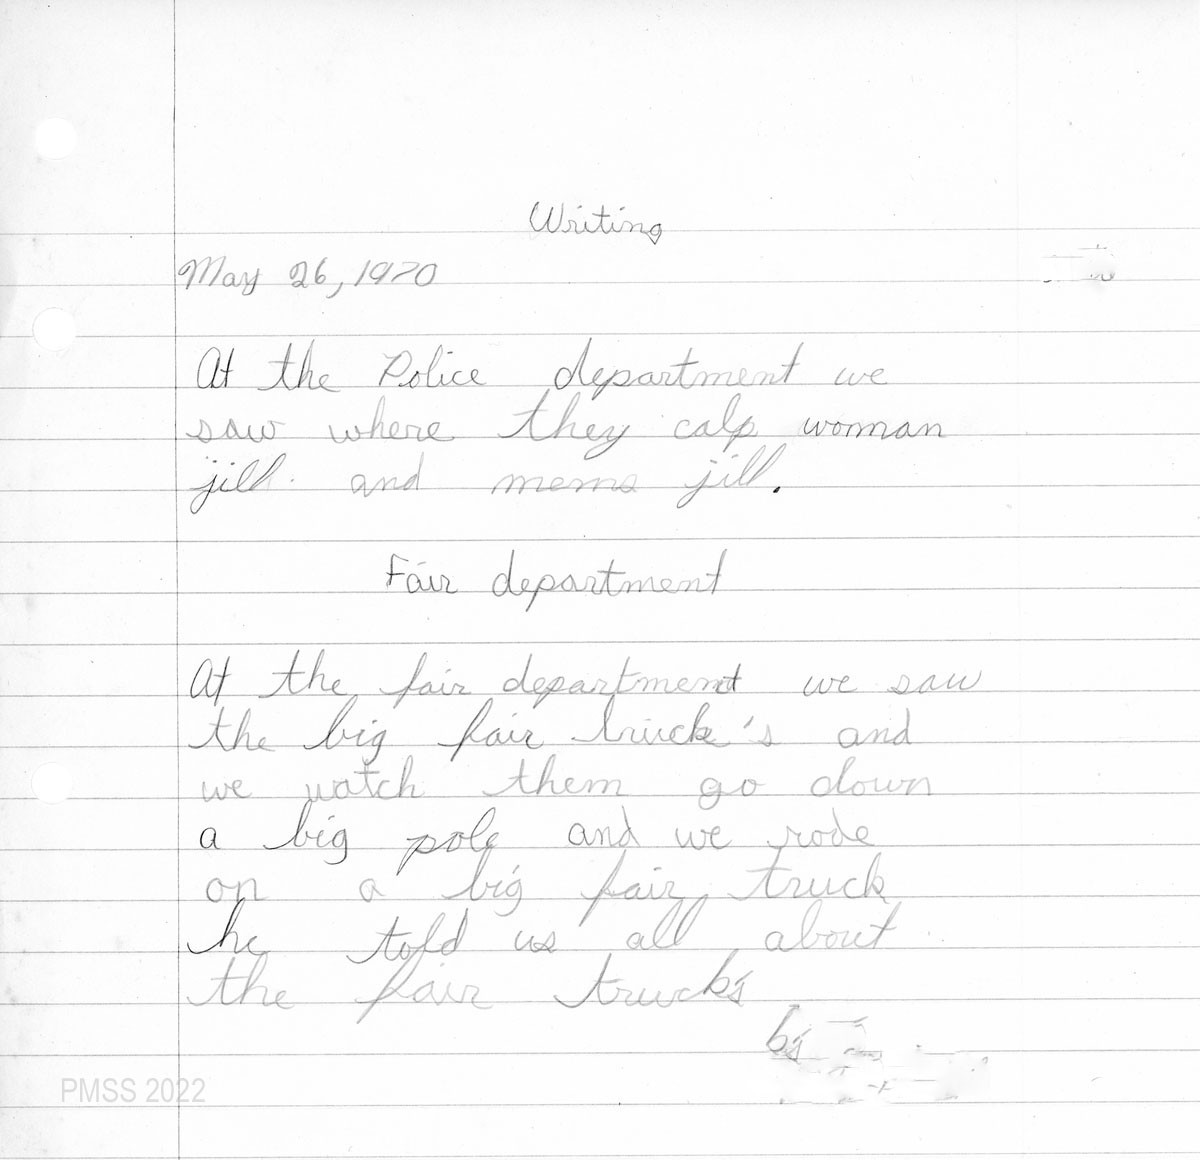 Writing
May 26, 1970
At the Police department we
saw where they calp woman
jill and mens jill.
Fair department
At the fair department we saw
the big fair truck's and
we watch them go down
a big pole and we rode
on a big fair truck
he told us all about
the fair truck's
PMSS 2022